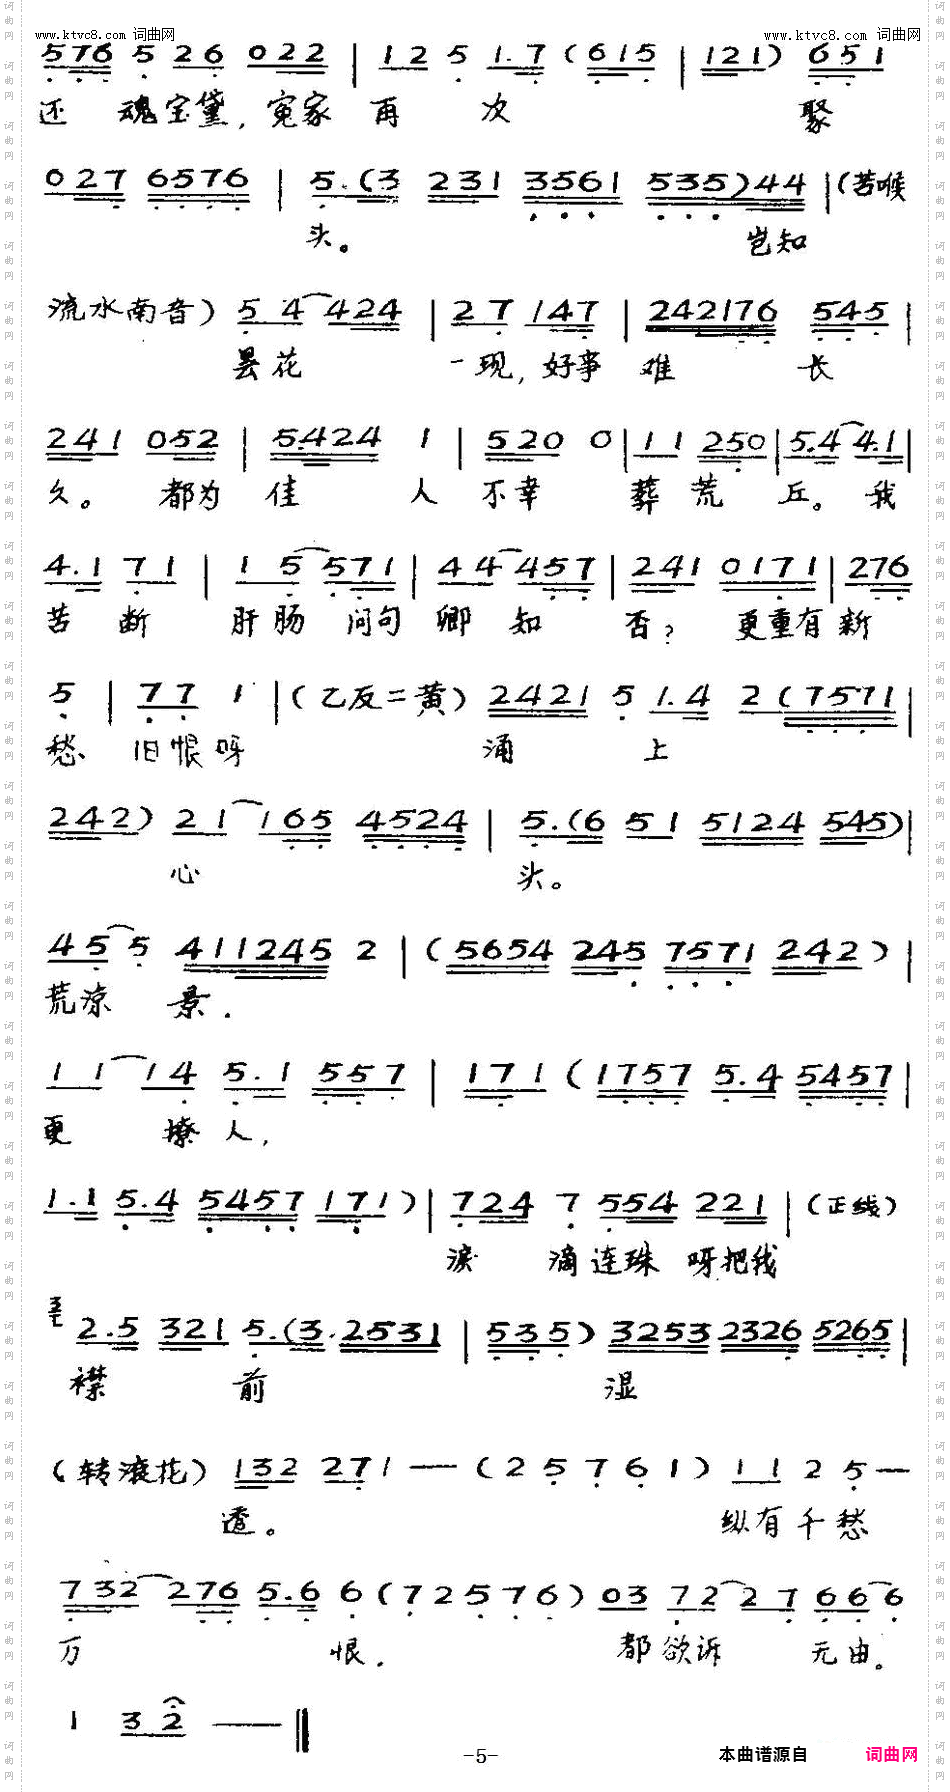 www.ktvc8.com 词曲网 www.ktvc8.com 词曲网
576 5 26 022 | 125 1.7 (615 | 121) 651
还 魂宝黛，冤家 再 次 聚
027 6576 | 5.(3 231 3561 535)44 | (苦喉
头。 岂知
流水南音) 54 424 | 27 147 | 242176 545 |
昙花 一现，好事 难 长
241 052 | 5424 1 | 520 0 | 11 250 | 5.4 4.1 |
久。 都为 佳 人 不幸 葬荒 丘。我
4.1 71 | 15 571 | 44 457 | 241 0171 | 276
苦 断 肝肠 问句 卿 知 否？ 更重有新
5 | 77 1 | (乙反二黄) 2421 5 1.4 2 (7571 |
愁 旧恨呀 涌 上
242) 21 165 4524 | 5.(6 51 5124 545) |
心 头。
45 5 411245 2 | (5654 245 7571 242) |
荒凉 景．
11 14 5.1 557 | 171 (1757 5.4 5457 |
更 撩人，
1.1 5.4 5457 171) | 724 7 554 221 | (正线)
泪 滴连珠 呀把我
2.5 321 5.(3.2531 | 535) 3253 2326 5265 |
襟 前 湿
(转滚花) 132 271 — (25761) 11 2 5—
透。 纵有千愁
732 276 5.6 6 (72576) 03 72 27 66 6
万 恨． 都欲诉 无由。
1 32 —
-5- 本曲谱源自 词曲网